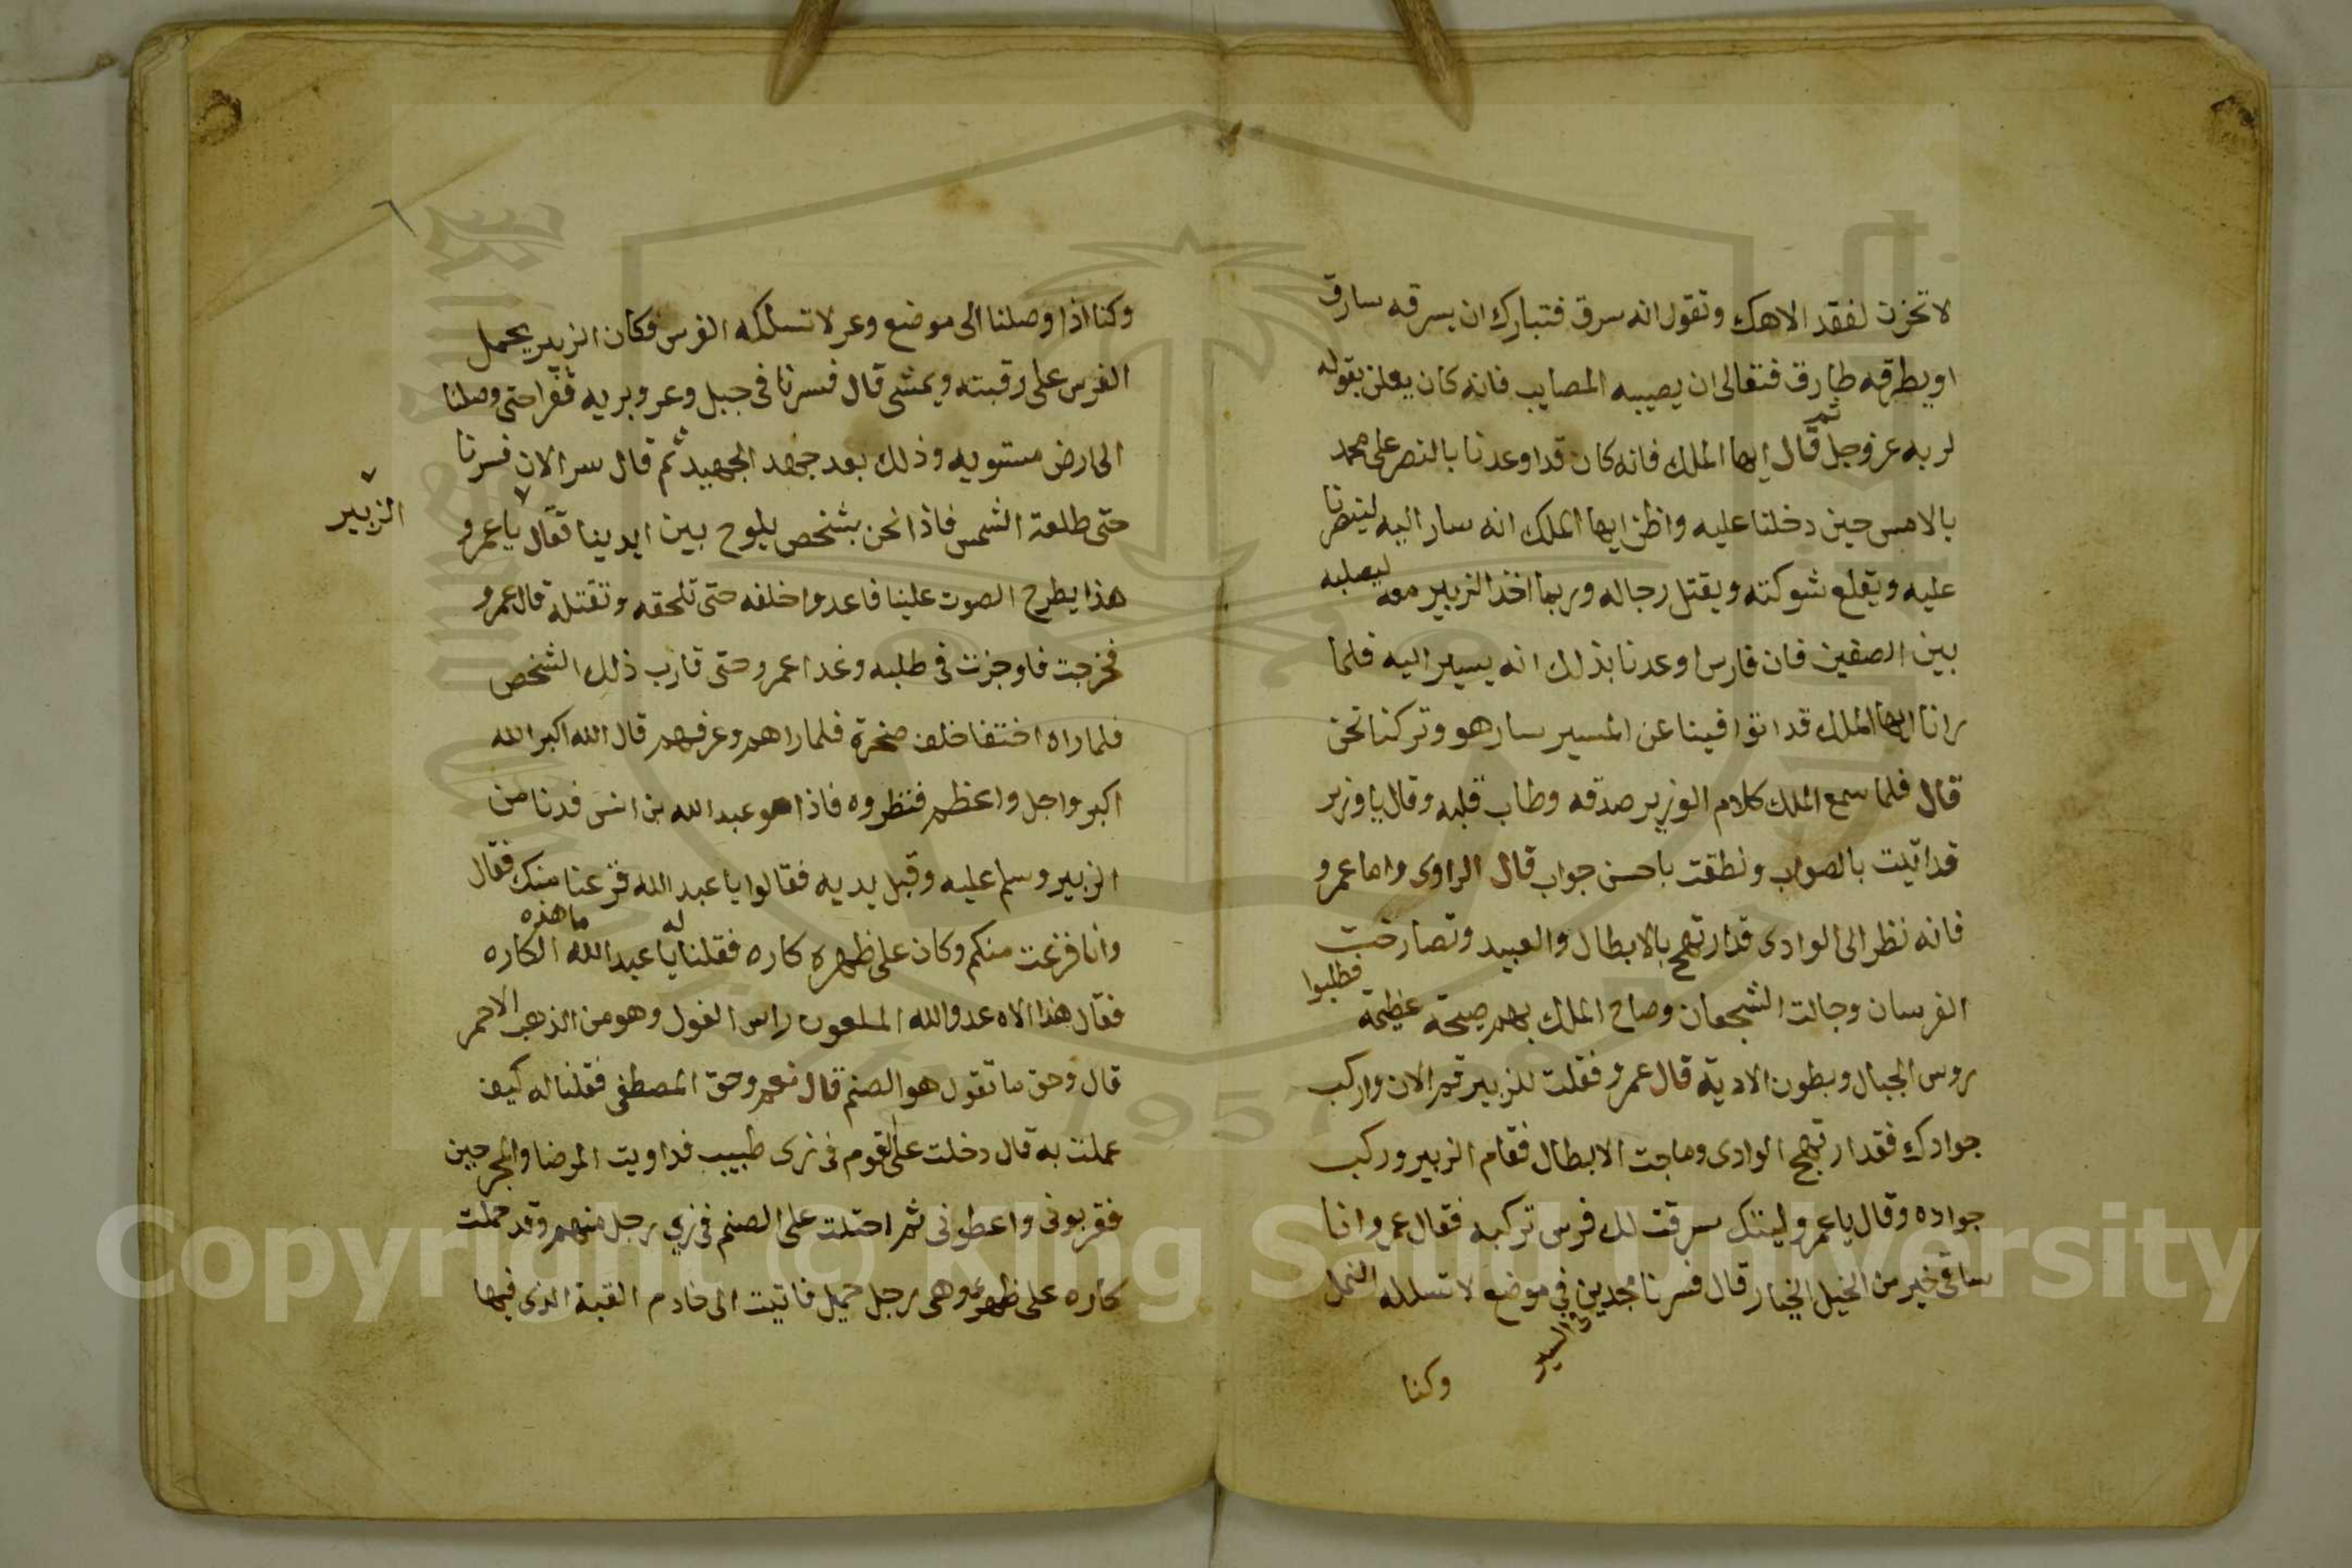 لا تحزن لفقد الاهك وتقول انه سرق فتبارك ان يسرقه سارق
او يطرقه طارق فتعالى ان يصيبه المصايب فانه كان يعلن بقوله
لربه عز وجل ثم قال ايها الملك فانه كان قد اوعدنا بالنصر على محمد
بالامس حين دخلنا عليه واظن ايها الملك انه سار اليه لينصرنا
عليه ويقلع شوكته ويقتل رجاله وربما اخذ الزبير معه ليصلبه
بين الصفين فان فارس اوعدنا بذلك انه يسير اليه فلما
رانا ايها الملك قد اتوافينا عن المسير سار هو وتركنا نحن
قال فلما سمع الملك كلام الوزير صدقه وطاب قلبه وقال يا وزير
قد اتيت بالصواب ونطقت باحسن جواب قال الراوى واما عمرو
فانه نظر الى الوادى قد ارتهج بالابطال والعبيد وتصارخت
الفرسان وجالت الشجعان وصاح الملك بهم صيحة عظيمة فطلبوا
روس الجبال وبطون الاديه قال عمرو فقلت للزبير قم الان واركب
جوادك فقد ارتهج الوادى وماجت الابطال فقام الزبير وركب
جواده وقال يا عمرو ليتك سرقت لك فرس تركبه فقال عمرو انا
ساقى خير من الخيل الخيار قال فسرنا مجدين في السير في موضع لا تسلكه النمل
وكنا
٦
وكنا اذا وصلنا الى موضع وعر لا تسلكه الفرس فكان الزبير يحمل
الفرس على رقبته ويمشى قال فسرنا فى جبل وعر وبريه قفرا حتى وصلنا
الى ارض مستويه وذلك بعد جهد الجهيد ثم قال سر الان فسرنا
حتى طلعة الشمس فاذا نحن بشخص يلوح بين ايدينا فقال الزبير يا عمرو
هذا يطرح الصوت علينا فاعدوا خلفه حتى تلحقه وتقتله قال عمرو
فخرجت فاوجزت فى طلبه وغدا عمرو حتى قارب ذلك الشخص
فلما راه اختفا خلف صخرة فلما راهم وعرفهم قال الله اكبر الله
اكبر واجل واعظم فنظروه فاذا هو عبد الله بن انس فدنا من
الزبير وسلم عليه وقبل يديه فقالوا يا عبد الله فزعنا منك فقال
وانا فزعت منكم وكان على ظهره كاره فقلنا له يا عبد الله ما هذه الكاره
فقال هذا الاه عدو الله الملعون راس الغول وهو من الذهب الاحمر
قال وحق ما تقول هو الصنم قال نعم وحق المصطفى فقلنا له كيف
عملت به قال دخلت على القوم فى زى طبيب فداويت المرضا والمجرحين
فقربونى واعطونى ثم احتلت على الصنم في زي رجل منهم وقد حملت
كاره على ظهرى وهى رجل حميل فاتيت الى خادم القبة الذى فيها
Copyright © King Saud University
1957